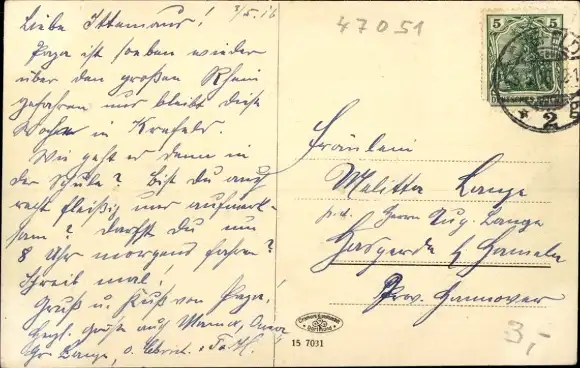 Liebe Ittemaus! 3/5.16
Papa ist soeben wieder
über den großen Rhein
gefahren und bleibt diese
Woche in Krefeld.
Wie geht es denn in
der Schule? Bist Du auch
recht fleißig und aufmerk-
sam? Darfst Du um
8 Uhr morgens fahren?
Schreib mal!
Gruß u. Kuß von Papa!
Grüße auch Mama, Oma,
Lange,
47051
5 5
2
Fräulein
Melitta Lange
p. Ad. Herrn Aug. Lange
Hasperde b/ Hameln
Prov. Hannover
15 7031
3,-